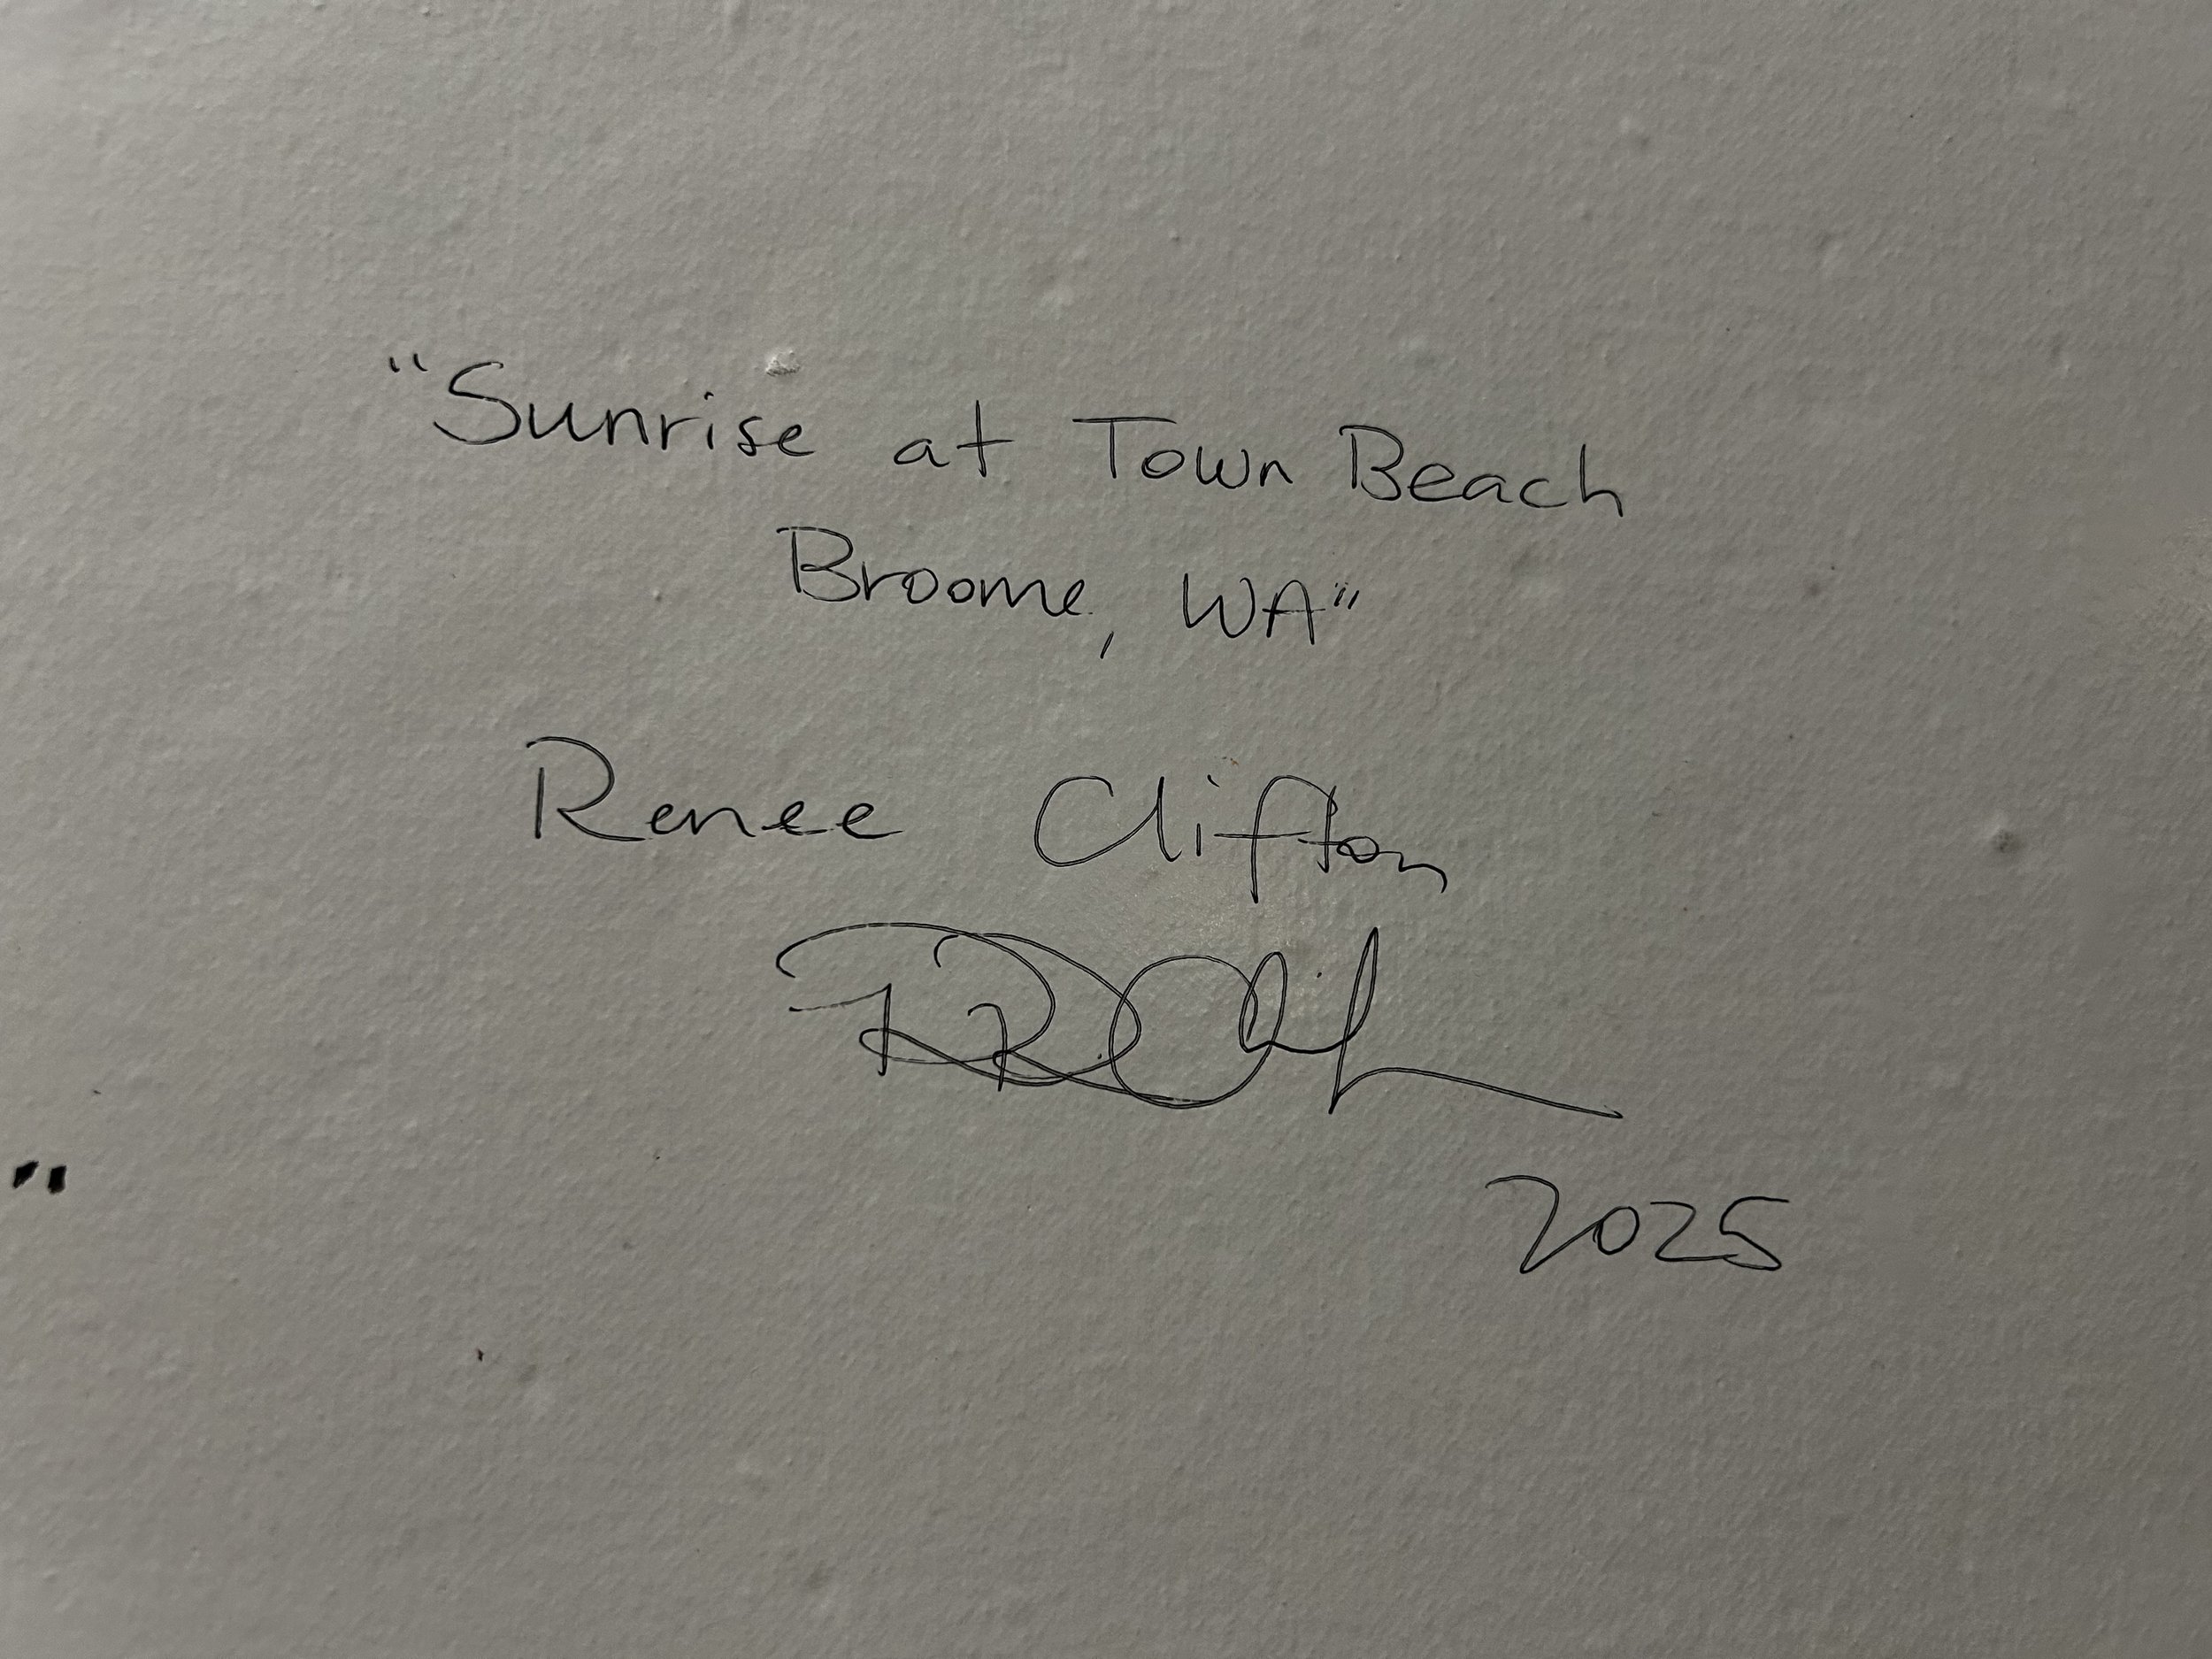 "Sunrise at Town Beach
Broome, WA"
Renee Clifton
2025
"